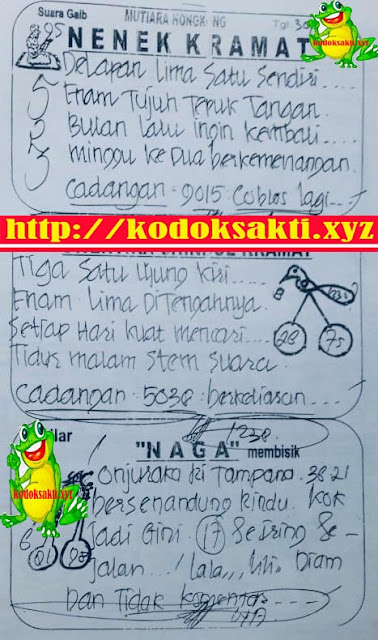 Suara Gaib
MUTIARA HONGKONG
Tgl. 30
NENEK KRAMAT
kodoksakti.xyz
Delapan Lima Satu Sendiri....
Enam Tujuh Tepuk Tangan.
Bulan lalu ingin kembali.....
Minggu ke Dua berkemenangan.
Cadangan = 9015 : Coblos lagi---
5
2
3
http://kodoksakti.xyz
KRAMAT
Tiga Satu Ujung Kiri.....
Enam Lima DiTengahnya.
Setiap Hari kuat mencari....
Tidur malam Stem Suara.
28
75
Cadangan : 5038 :
1238
"NAGA" membisik
kodoksakti.xyz
3821
bersenandung Rindu. KOK
jadi Gini. 17 Seiring Se-
jalan.../ lala,,, lili. Diam
Dan Tidak Komentar----